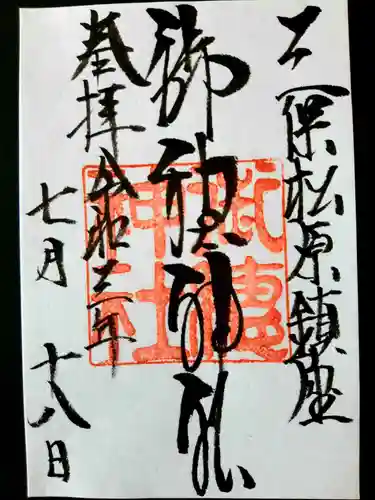 三保松原鎮座
御穂神社
奉拝 令和三年
七月十八日
神社